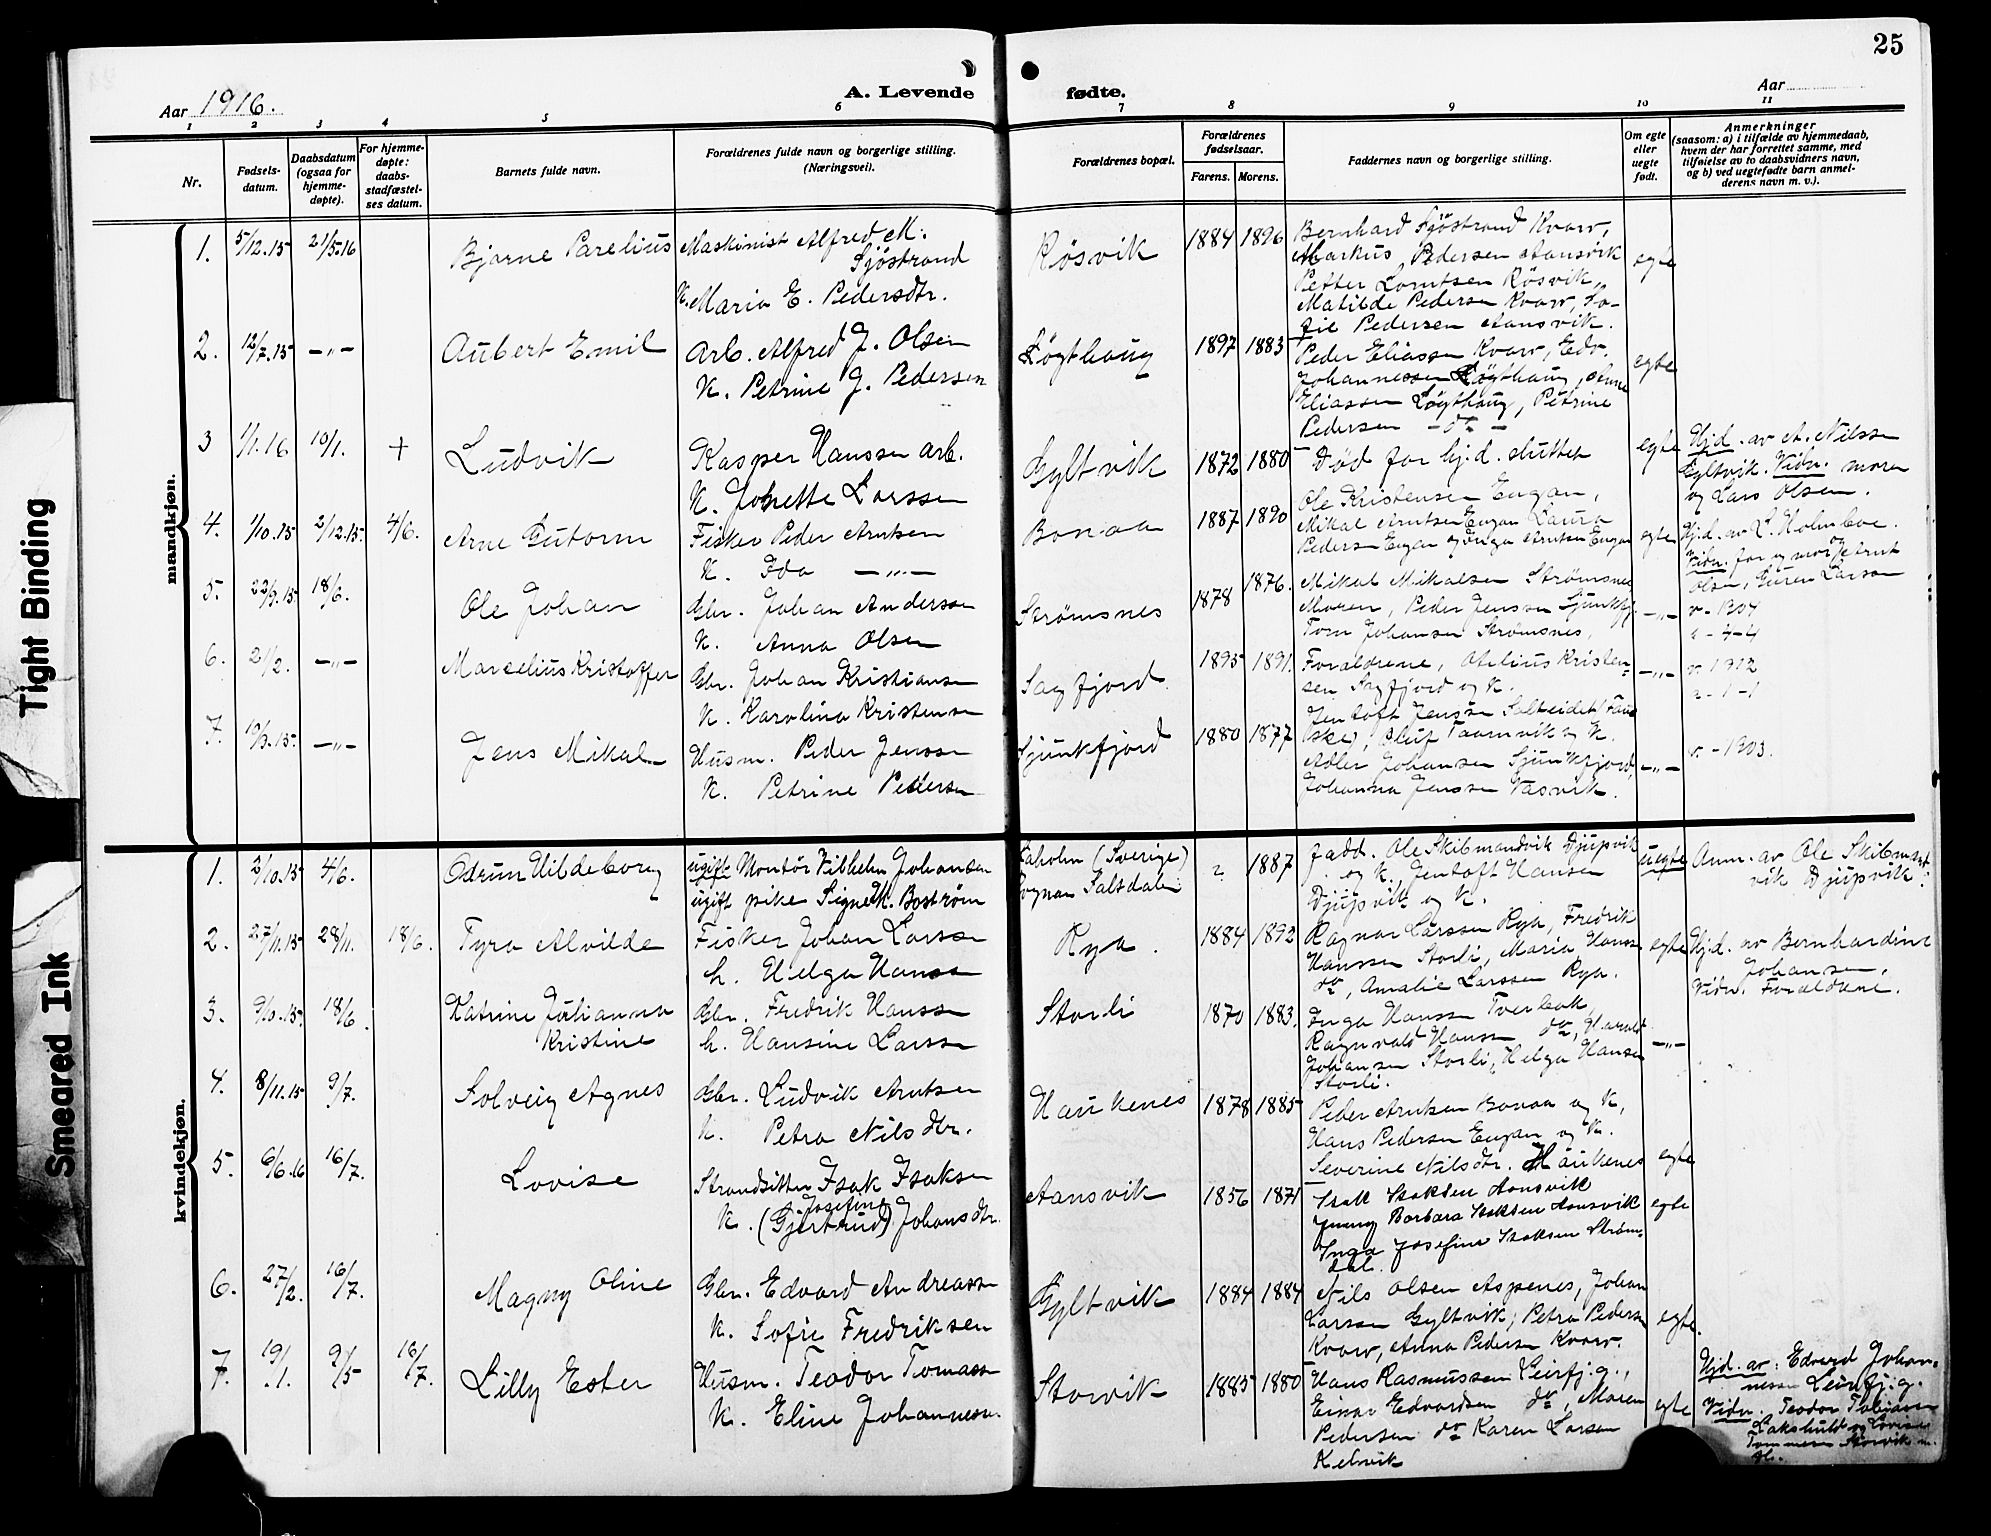 25
Aar 1916.
A. Levende fødte.
Aar
1 2 3 4 5 6 7 8 9 10 11
Nr.
Fødsels-
datum.
Daabsdatum
(ogsaa for
hjemme-
døpte).
For hjemme-
døpte:
daabs-
stadfæstel-
ses datum.
Barnets fulde navn.
Forældrenes fulde navn og borgerlige stilling.
(Næringsvei).
Forældrenes bopæl.
Forældrenes
fødselsaar.
Farens. Morens.
Faddernes navn og borgerlige stilling.
Om egte
eller
uegte
født.
Anmerkninger
(saasom: a) i tilfælde av hjemmedaab,
hvem der har forrettet samme, med
tilføielse av to daabsvidners navn,
og b) ved uegtefødte barn anmel-
derens navn m. v.).
mandkjøn.
1. 5/12.15 21/5.16 Bjarne Parelius
Maskinist Alfred M.
Sjöstrand
K. Maria E. Pedersdtr.
Røsvik 1884 1896
Bernhard Sjöstrand Kvarv,
Markus Pedersen Aansvik
Petter Lorntsen Røsvik,
Matilde Pedersen Kvarv, So-
fie Pedersen Aansvik.
egte
2. 12/7.15 -"- Aubert Emil
Arb. Alfred J. Olsen
K. Petrine J. Pedersen
Løgthaug 1897 1883
Peder Eliassen Kvarv, Edv.
Johannessen Løgthaug, Anne
Eliassen Løgthaug, Petrine
Pedersen - do -
egte
3 1/1.16 10/1. + Ludvik
Kasper Hanssen arb.
K. Johette Larssen
Gyltvik 1872 1880
Død før hj.d. sluttet
egte
Hjd. av A. Nilssen
Gyltvik. Vidn. moren
og Lars Olsen.
4. 1/10.15 2/12.15. 4/6. Arne Gutorm
Fisker Peder Arntsen
K. Ida -"-
Bonaa 1887 1890
Ole Kristensen Engan,
Mikal Arntsen Engan Laura
Pedersen Engan og Inga Arntsen Engan
egte
Hj.d. av L. Holmboe.
Vidn. far og mor
5. 23/9.15. 18/6. Ole Johan
Gbr. Johan Anderssen
K. Anna Olsen
Strømsnes 1878 1876.
Mikal Mikalsen Strømsnes,
Maren, Peder Jenssen Sjunkfj.
Torn Johansen Strømsnes,
-"-
Olsen, Guren Larsen
v. 1304
6. 21/2. -"- Marselius Kristoffer
Gbr. Johan Kristiansen
K. Karolina Kristensen
Sagfjord. 1895 1891.
Forældrene, Otelius Kristen-
sen Sagfjord og K.
-"- v. 1912
7. 19/9.15. -"- Jens Mikal
Husm. Peder Jenssen
K. Petrine Pedersen
Sjunkfjord 1880 1877
Jentoft Jenssen Salteidet (Fau-
ske), Oluf Taarnvik og K.
Adler Johansen Sjunkfjord,
Johanna Jenssen Vasvik.
-"- v.-1303.
kvindekjøn.
1. 2/10.15 4/6. Odrun Hildeborg
ugift Montør Vilhelm Johansen
ugift pike Signe K. Boström
(Sverige)
Rognan Saltdalen
? 1887
fadd. Ole Skibmandvik Djupvik
og K. Jentoft Hansen
Djupvik og K.
uegte
Anm. av Ole Skibmand-
vik Djupvik.
2. 27/11.15 28/11. 18/6. Tyra Alvilde
Fisker Johan Larssen
h. Helga Hanssen
Rya. 1884 1892
Ragnar Larssen Rya, Fredrik
Hanssen Storli, Maria Hanssen
do, Amalie Larssen Rya.
egte
Hjd. av Bernhardine
Johansen,
Vidn. Forældrene.
3. 9/10.15. 18/6. Katrine Julianna
Kristine
Gbr. Fredrik Hanssen
h. Hansine Larssen
Storli 1870 1883.
Inga Hanssen Tverbak,
Ragnvald Hanssen do, Harald
Johansen Storli, Helga Hansen
Storli.
-"-
4. 8/11.15 9/7. Solveig Agnes
Gbr. Ludvik Arntsen
K. Petra Nilsdtr.
Haukenes 1878 1885
Peder Arntsen Bonaa og K,
Hans Pedersen Engan og K.
Severine Nilsdtr. Haukenes
egte
5. 6/6.16 16/7. Lovise
Strandsitter Isak Isaksen
Josefine
K. (Gjertrud) Johansdtr.
Aansvik 1856 1871
Isak Isaksen Aansvik
Jenny Barbara Isaksen Aansvik
Inga Josefine Isaksen Strøm-
dal.
egte
6. 27/2. 16/7. Magny Oline
Gbr. Edvard Andreassen
K. Sofie Fredriksen
Gyltvik 1884 1884
Nils Olsen Aspenes, Johan
Larssen Gyltvik, Petra Pedersen
Kvarv, Anna Pedersen Kvarv.
egte.
7. 19/1. 9/5 16/7. Lilly Ester
Husm. Teodor Tomassen
K. Eline Johannessen.
Storvik 1885 1880
Hans Rasmussen Leirfj.g.,
Einar Edvardsen do, Maren
Pedersen do Karen Larsen
Kelvik
egte
Hjd. av: Edvard Johan-
nessen Leirfj.g.
Vidn. Teodor Tobiassen
Lakshuld og Lovise
Tommesen Storvik m.
fl.
Tight Binding
Smeared Ink